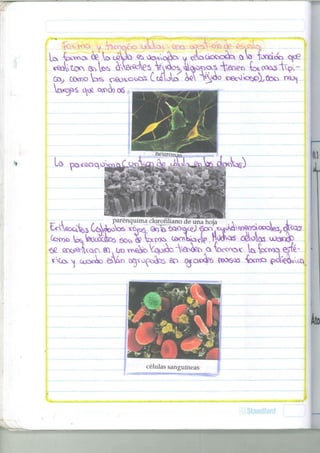 Forma y tamaño celular: una cuestión de espacio
La forma de la célula es variada y relacionada a la función que
realizan en los diferentes tejidos, algunas tienen formas típi-
cas, como las neuronas (célula del tejido nervioso), son muy
largas que anchas.
neuronas
La parenquima ( de célula en las plantas)
parénquima clorofiliano de una hoja
Eritrocitos (glóbulos rojos en la sangre) son dimensionales, otras
como los leucocitos son de forma cambiante. Muchas células cuando
se encuentran en un medio líquido tienden a tomar la forma esfé-
rica y cuando están agrupadas en grandes masas forma poliédrica
células sanguíneas
Standford